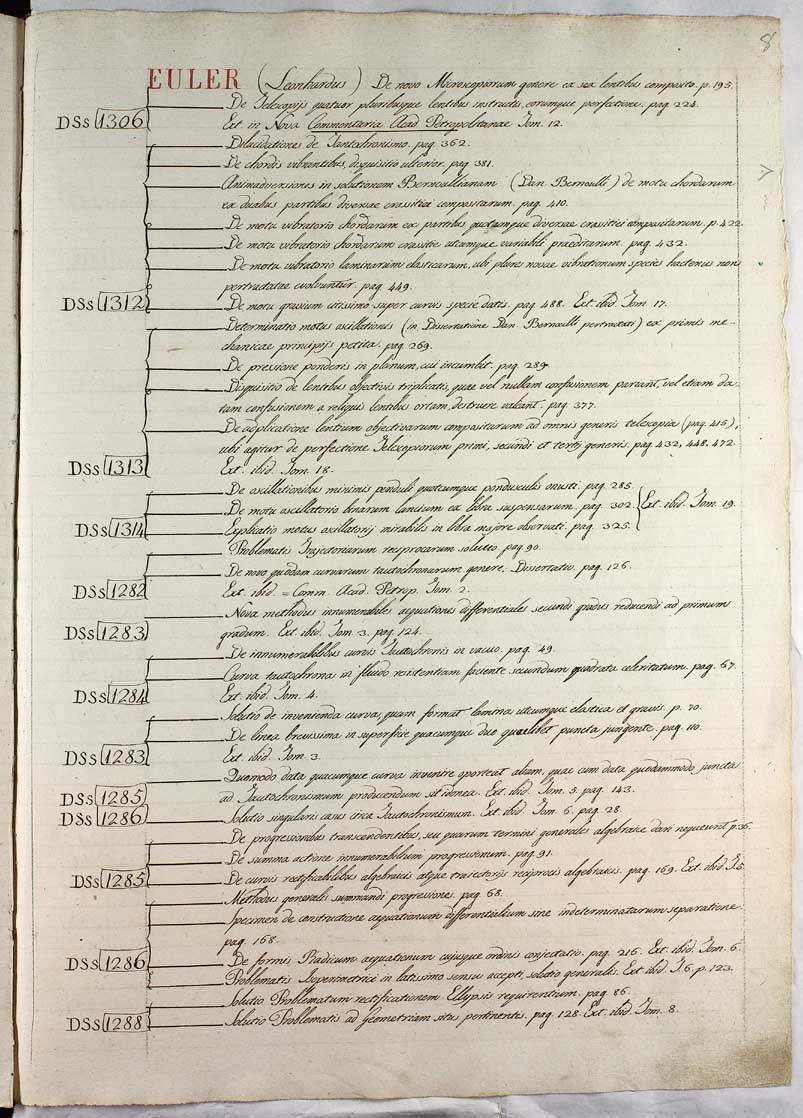 8
EULER (Leonhardus) De novo Microscopiorum genere ex sex lentibus composito. p. 195.
De Telescopijs quatuor pluribusque lentibus instructis, eorumque perfectione. pag. 224.
DSs 1306 Ext. in Nova Commentaria Acad. Petropolitanae Tom. 12.
Dilucidationes de Tautochronismo. pag. 362.
De chordis vibrantibus, disquisitio ulterior. pag. 381.
Animadversiones in solutionem Bernoullianam (Dan. Bernoulli) de motu chordarum
ex duabus partibus diversae crassitiei compositarum. pag. 410.
De motu vibratorio chordarum ex partibus quotcumque diversae crassitiei compositarum. p. 422.
De motu vibratorio chordarum crassitie utcumque variabili praeditarum. pag. 432.
De motu vibratorio laminarum elasticarum, ubi plures novae vibrationum species hactenus non
pertractatae evolvuntur. pag. 449.
DSs 1312 De motu gravium citissimo super curvis specie datis. pag. 488. Ext. ibid. Tom. 17.
Determinatio motus oscillationis (in Dissertatione Dan. Bernoulli pertractati) ex primis me-
chanicae principijs petita. pag. 269.
De pressione ponderis in planum, cui incumbit. pag. 289.
Disquisitio de lentibus objectivis triplicatis, quae vel nullam confusionem pariant, vel etiam da-
tam confusionem a reliquis lentibus ortam, destruere valeant. pag. 377.
De applicatione lentium objectivarum compositarum ad omnis generis telescopia (pag. 415),
ubi agitur de perfectione Telescopiorum primi, secundi et tertij generis. pag. 432, 448. 472.
DSs 1313 Ext. ibid. Tom. 18.
De oscillationibus minimis penduli quotcumque pondusculis onusti. pag. 285.
De motu oscillatorio binarum lancium ex libra suspensarum. pag. 302. Ext. ibid. Tom. 19.
DSs 1314 Explicatio motus oscillatorij mirabilis in libra majore observati. pag. 325.
Problematis Trajectoriarum reciprocarum solutio pag. 90.
De novo quodam curvarum tautochronarum genere. Dissertatio. pag. 126.
DSs 1282 Ext. ibid. = Comm. Acad. Petrop. Tom. 2.
Nova methodus innumerabiles aequationes differentiales secundi gradus reducendi ad primum
DSs 1283 gradum. Ext. ibid. Tom. 3. pag. 124.
De innumerabilibus curvis Tautochronis in vacuo. pag. 49.
Curva tautochrona in fluido resistentiam faciente secundum quadrata celeritatum. pag. 67.
DSs 1284 Ext. ibid. Tom. 4.
Solutio de invenienda curva, quam format lamina utcumque elastica et gravis. p. 70.
De linea brevissima in superficie quacumque duo quaelibet puncta jungente. pag. 110.
DSs 1283 Ext. ibid. Tom. 3.
Quomodo data quacumque curva invenire oporteat aliam, quae cum data quodammodo juncta
DSs 1285 ad Tautochronismum producendum sit idonea. Ext. ibid. Tom. 5. pag. 143.
DSs 1286 Solutio singularis casus circa Tautochronismum. Ext. ibid. Tom. 6. pag. 28.
De progressionibus transcendentibus, seu quarum termini generales algebraice dari nequeunt. p. 36.
De summatione innumerabilium progressionum. pag. 91.
DSs 1285 De curvis rectificabilibus algebraicis atque traiectorijs reciprocis algebraicis. pag. 169. Ext. ibid. T. 5
Methodus generalis summandi progressiones. pag. 68.
Specimen de constructione aequationum differentialium sine indeterminatarum separatione.
pag. 168.
DSs 1286 De formis Radicum aequationum cujusque ordinis conjectatio. pag. 216. Ext. ibid. Tom. 6.
Problematis Isoperimetrici in latissimo sensu accepti, solutio generalis. Ext. ibid. T. 6. p. 123.
Solutio Problematum rectificationem Ellypsis requirentium. pag. 86.
DSs 1288 Solutio Problematis ad Geometriam situs pertinentis. pag. 128. Ext. ibid. Tom. 8.